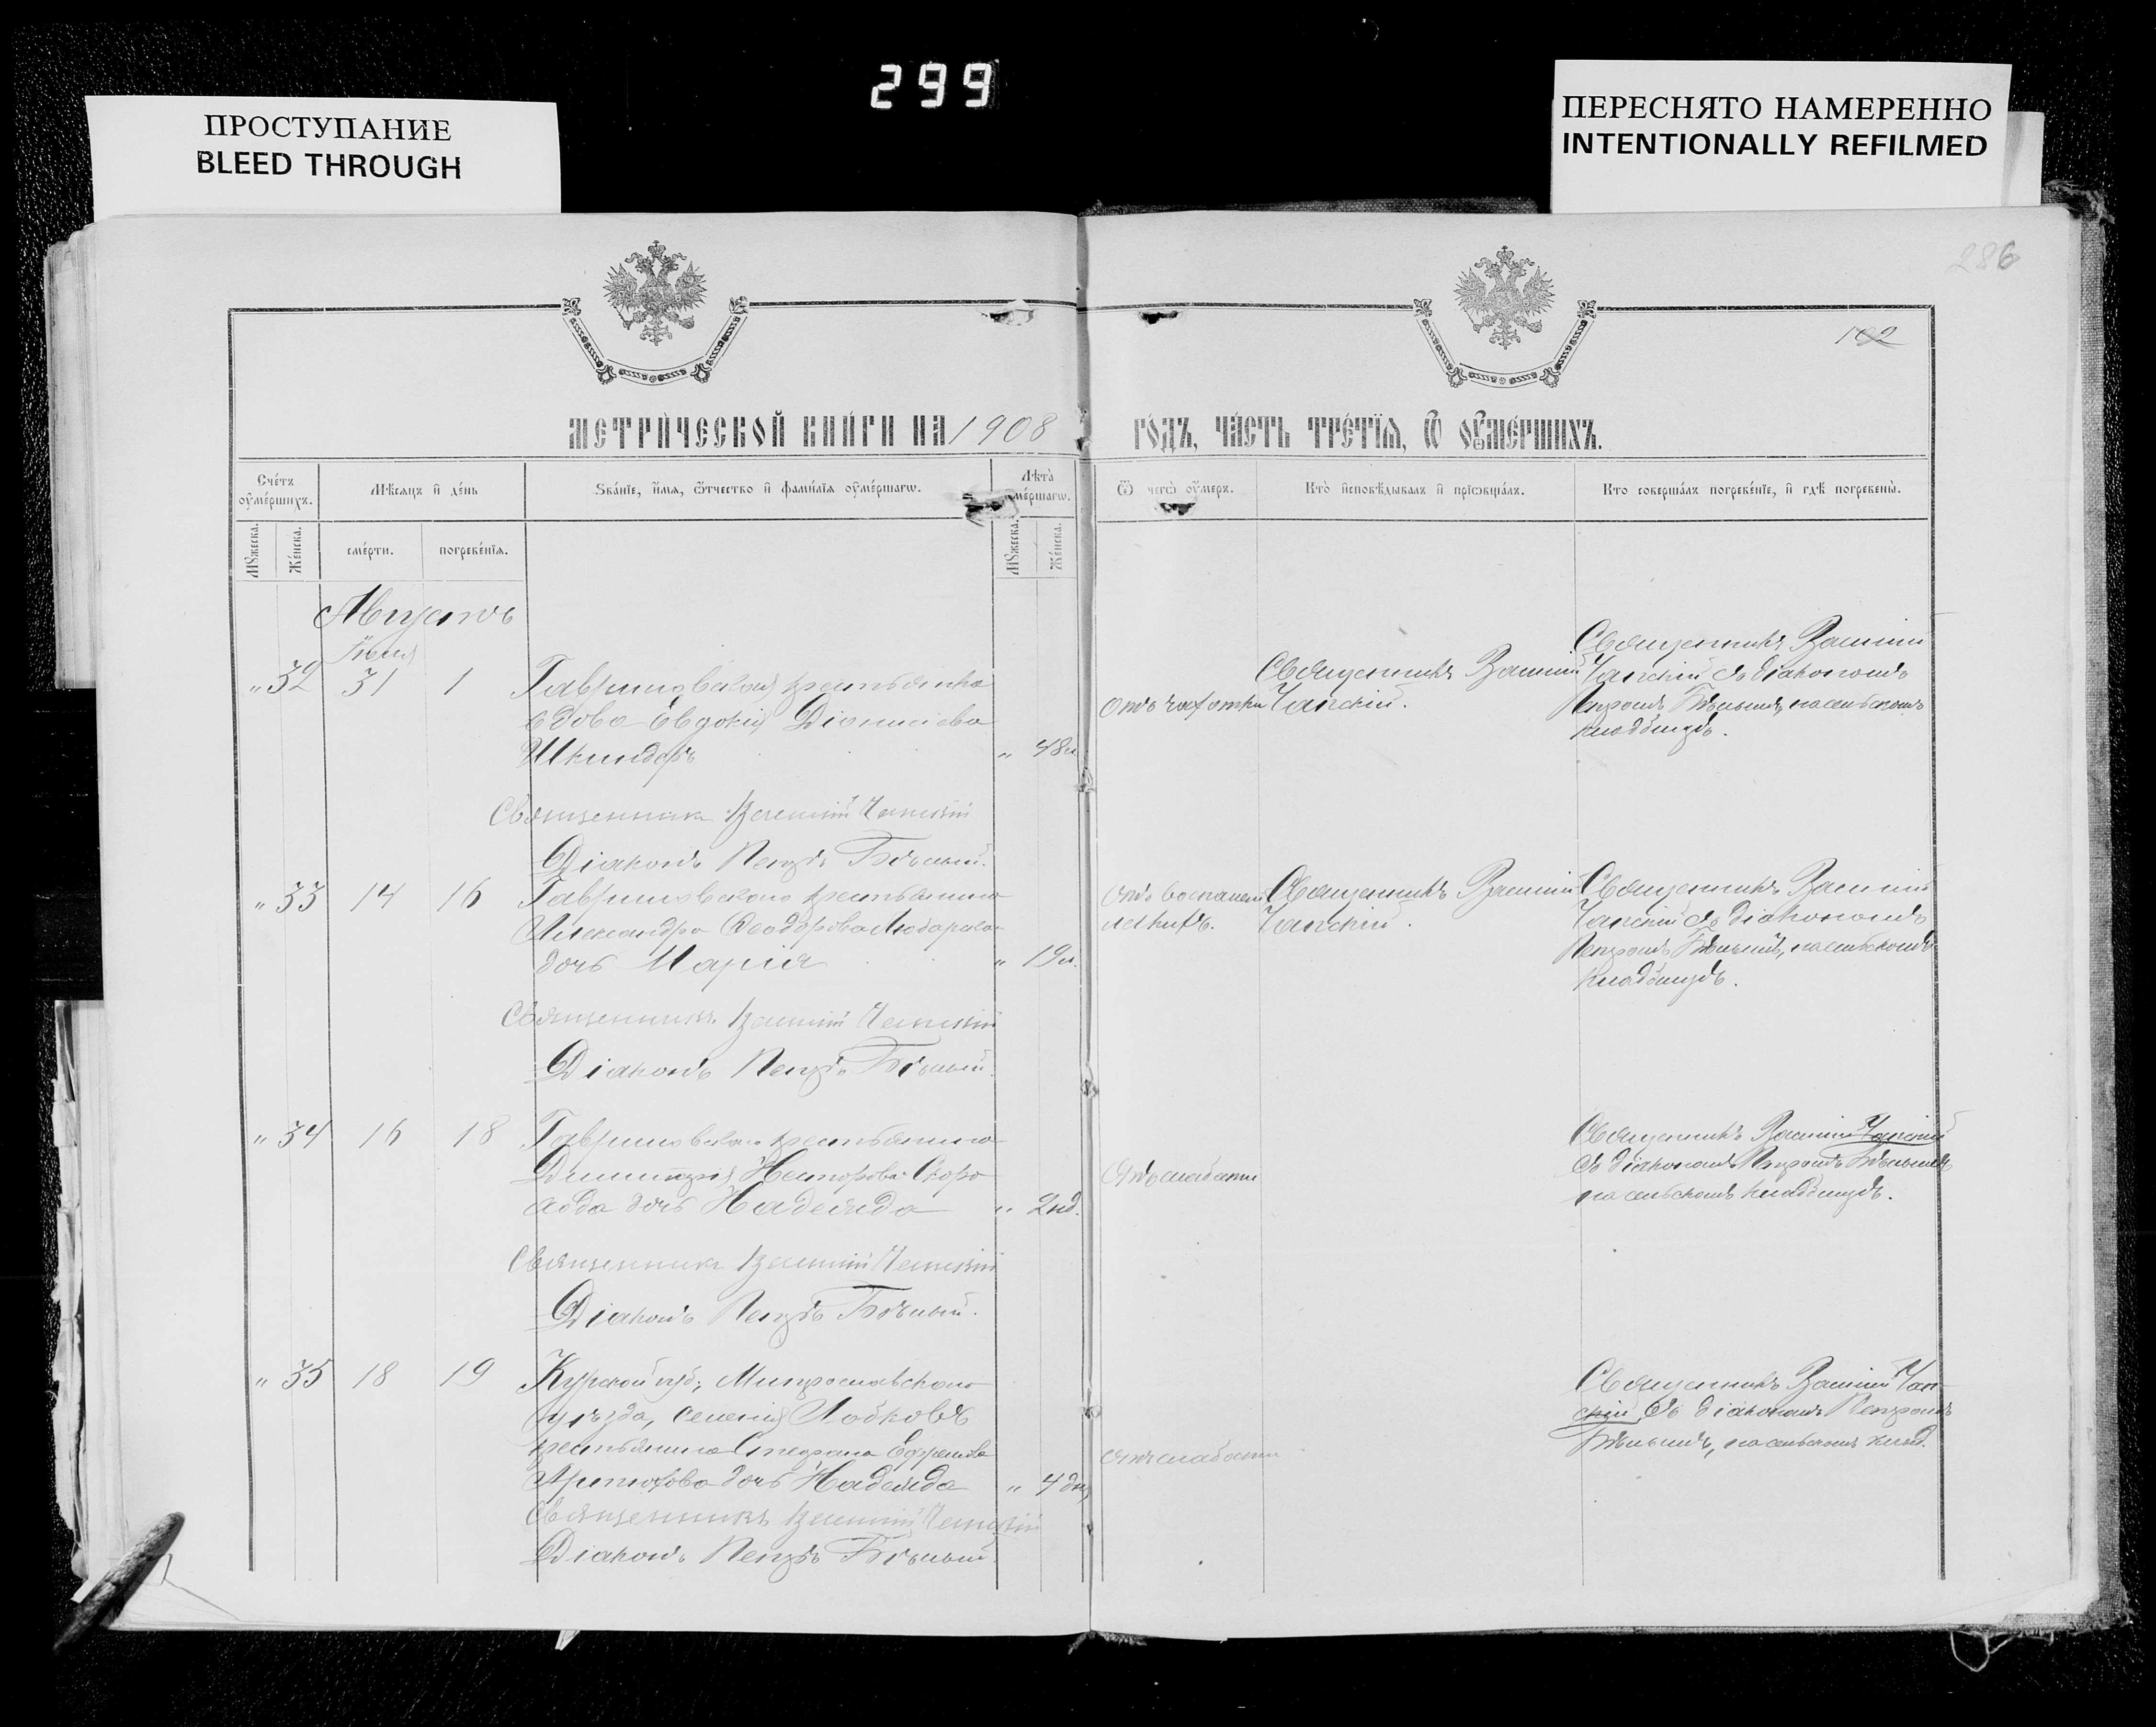 299
ПРОСТУПАНИЕ
BLEED THROUGH
ПЕРЕСНЯТО НАМЕРЕННО
INTENTIONALLY REFILMED
286
102
МЕТРИ́ЧЕСКОЙ КНИ́ГИ НА 1908 ГО́ДЪ, ЧА́СТЬ ТРЕ́ТЇѦ, Ѿ ОУМЕ́РШИХЪ.
Сче́тъ оумершихъ.
Мѣсѧцъ и де́нь
Зва́нїе, и́мѧ, ѻ́тчество и фами́лїѧ оуме́ршагѡ.
Лѣта̀ оуме́ршагѡ.
Ѿ чегѡ̀ оу́меръ.
Кто̀ и҆сповѣ́дывалъ и҆ прїѡбща́лъ.
Кто соверша́лъ погребе́нїе, и҆ гдѣ̀ погребены̀.
Мꙋ́жеска.
Же́нска.
сме́рти.
погребе́нїѧ.
Мꙋ́жеска.
Же́нска.
Августъ
Іюля
" 32 31 1 Гавриловская крестьянка
вдова Евдокія Діонисіева
Шкиндеръ " 48 л.
отъ чахотки
Священникъ Василій
Чапскій.
Священникъ Василій
Чапскій съ діакономъ
Петромъ Бѣлымъ, на сельскомъ
кладбищѣ.
Священникъ Василій Чапскій
Діаконъ Петръ Бѣлый.
" 33 14 16 Гавриловскаго крестьянина
Александра Ѳеодорова Любарска
дочь Марія " 19 л.
отъ воспален
легкихъ.
Священникъ Василій
Чапскій.
Священникъ Василій
Чапскій съ діакономъ
Петромъ Бѣлымъ, на сельскомъ
кладбищѣ.
Священникъ Василій Чапскій
Діаконъ Петръ Бѣлый.
" 34 16 18 Гавриловскаго крестьянина
Димитрія Несторова Скоро
дочь Надежда " 2 нд.
отъ слабости
Священникъ Василій Чапскій
съ діакономъ Петромъ Бѣлымъ
на сельскомъ кладбищѣ.
Священникъ Василій Чапскій
Діаконъ Петръ Бѣлый.
" 35 18 19 Курской губ., Митрославскаго
уѣзда, селенія Лобковъ
крестьянина Стефана Ефремова
Артюхова дочь Надежда " 4 дн.
отъ слабости
Священникъ Василій Чап-
скій съ діакономъ Петромъ
Бѣлымъ, на сельскомъ клад.
Священникъ Василій Чапскій
Діаконъ Петръ Бѣлый.